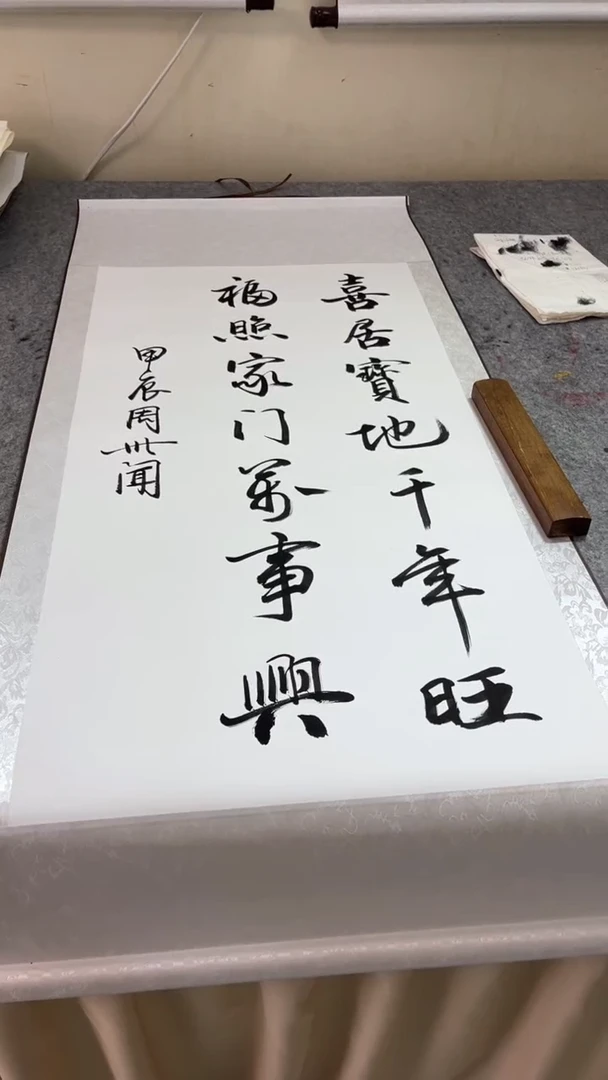 喜居寶地千年旺
福照家门萬事興
甲辰周世闻